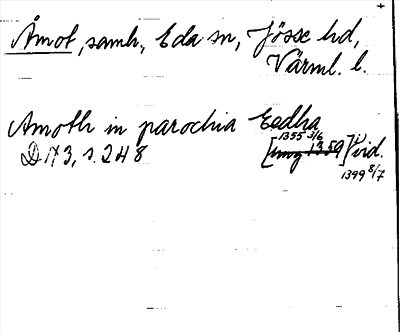 +
Åmot, samh., Eda sn, Jösse hd,
Värml. l.
Amoth in parochia Eedha
1355 3/6
D 173, s. 248 [omg 1359] i vid.
1399 8/7